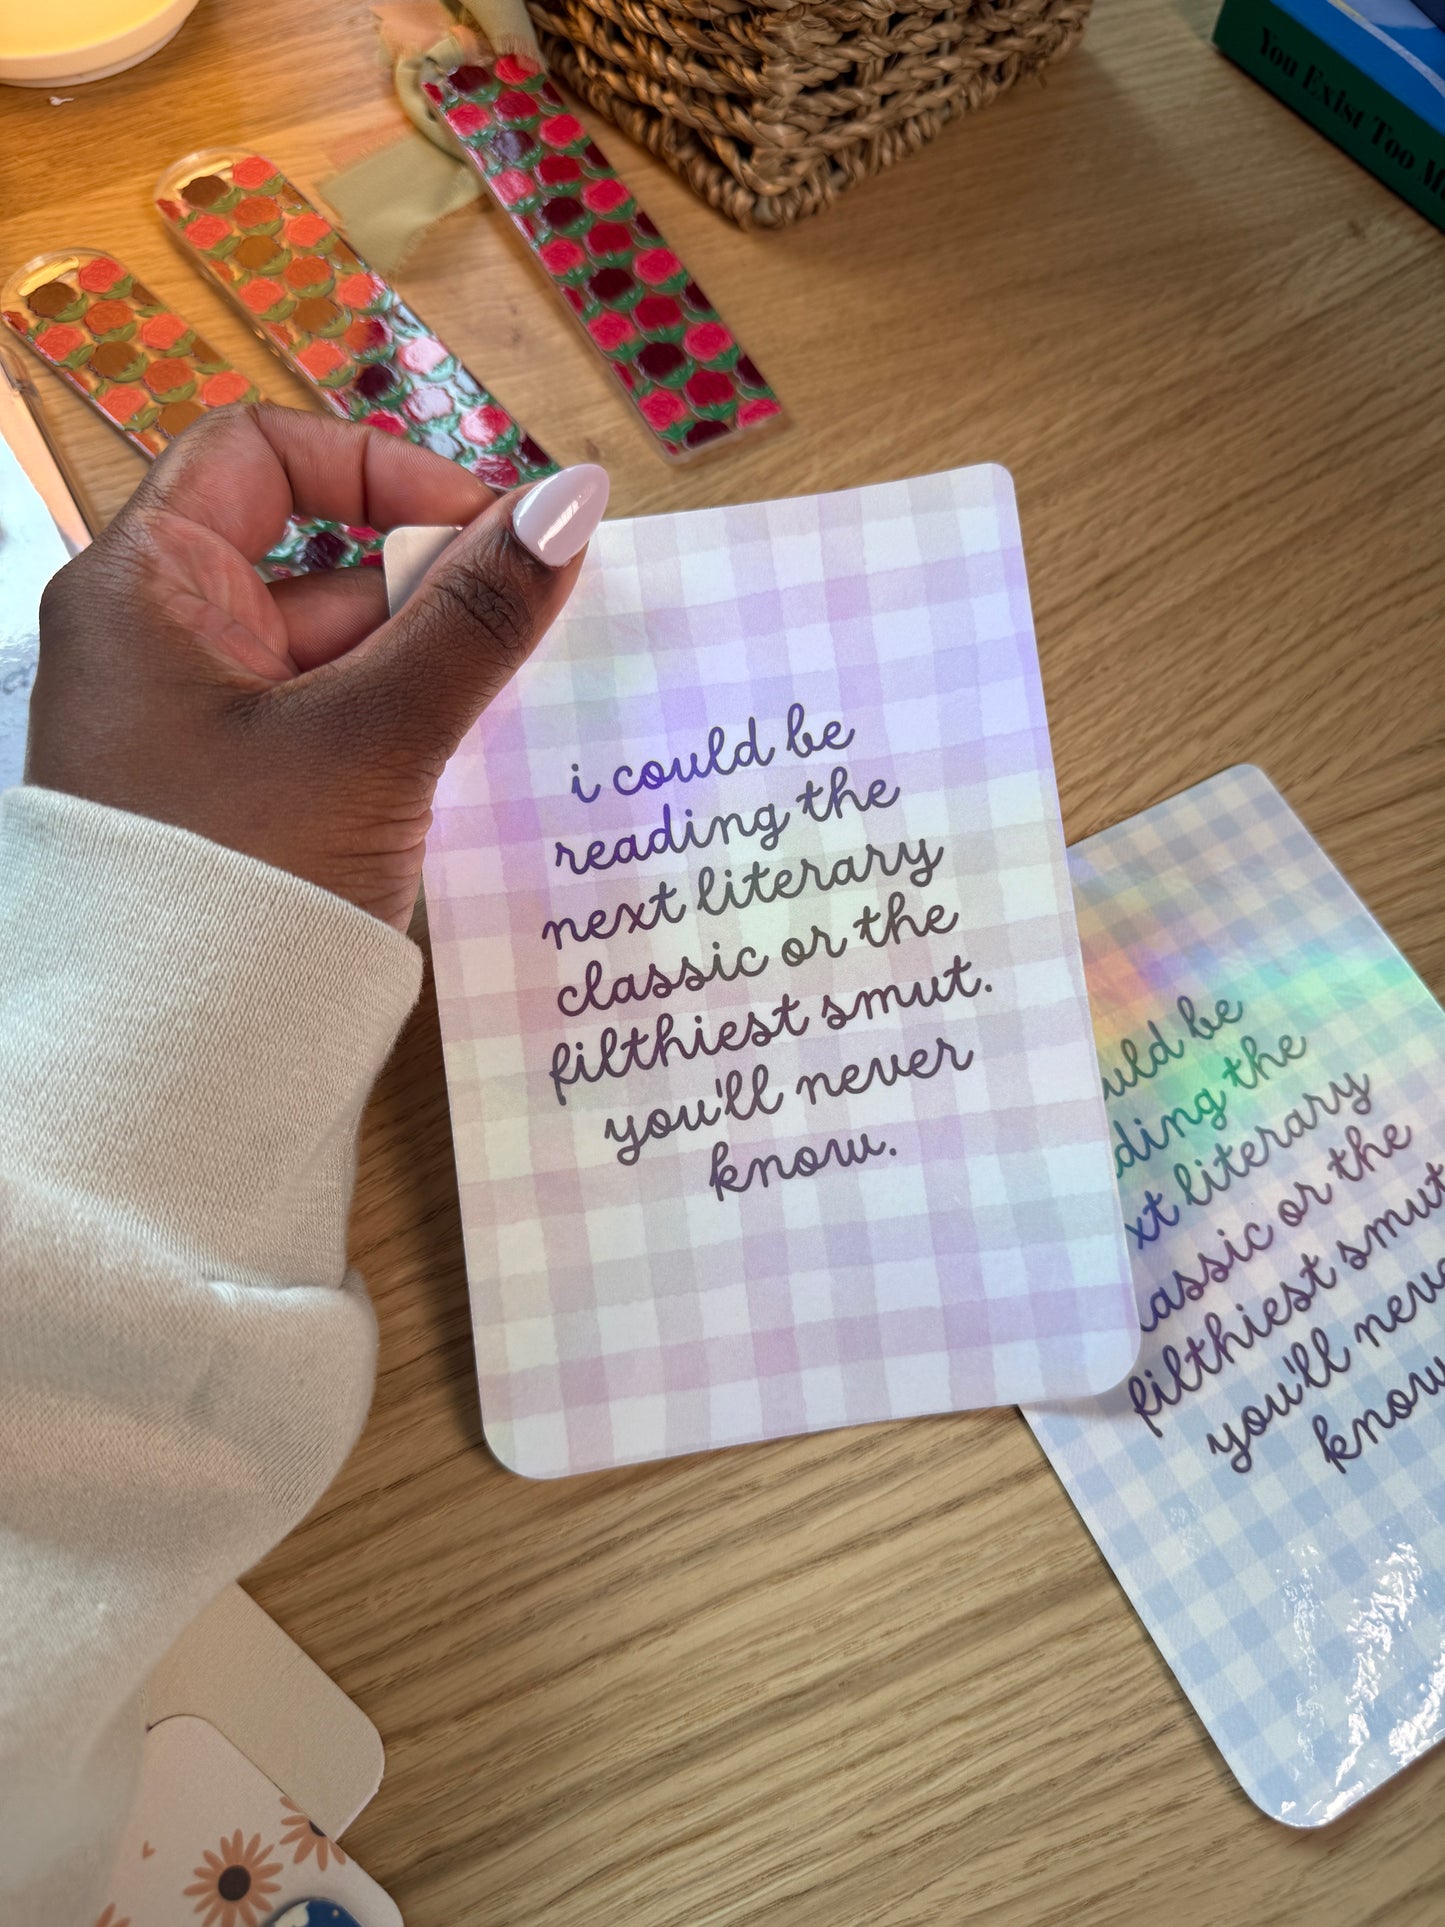 You Exist Too
i could be
reading the
next literary
classic or the
filthiest smut.
you'll never
know.
be
the
literary
classic or the
filthiest smut
you'll
know